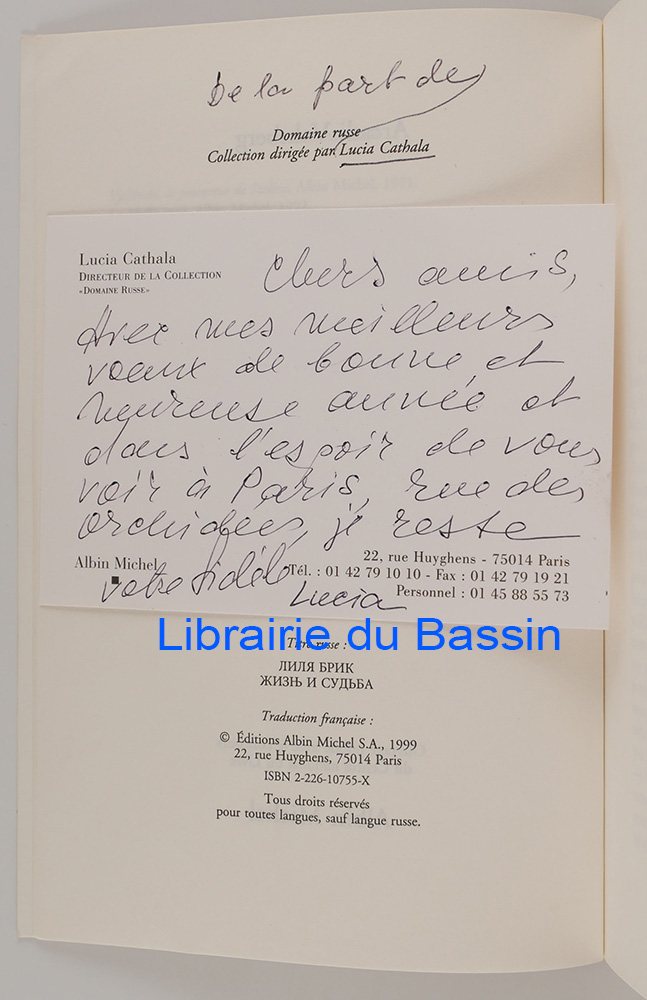 De la part de
Domaine russe
Collection dirigée par Lucia Cathala
Lucia Cathala
DIRECTEUR DE LA COLLECTION
«DOMAINE RUSSE»
Chers amis,
Avec mes meilleurs
voeux de bonne et
heureuse année et
dans l'espoir de vous
voir à Paris, rue des
orchidées, je reste
votre fidèle
Lucia
Albin Michel
22, rue Huyghens - 75014 Paris
Tél. : 01 42 79 10 10 - Fax : 01 42 79 19 21
Personnel : 01 45 88 55 73
Librairie du Bassin
Titre russe :
ЛИЛЯ БРИК
ЖИЗНЬ И СУДЬБА
Traduction française :
© Éditions Albin Michel S.A., 1999
22, rue Huyghens, 75014 Paris
ISBN 2-226-10755-X
Tous droits réservés
pour toutes langues, sauf langue russe.